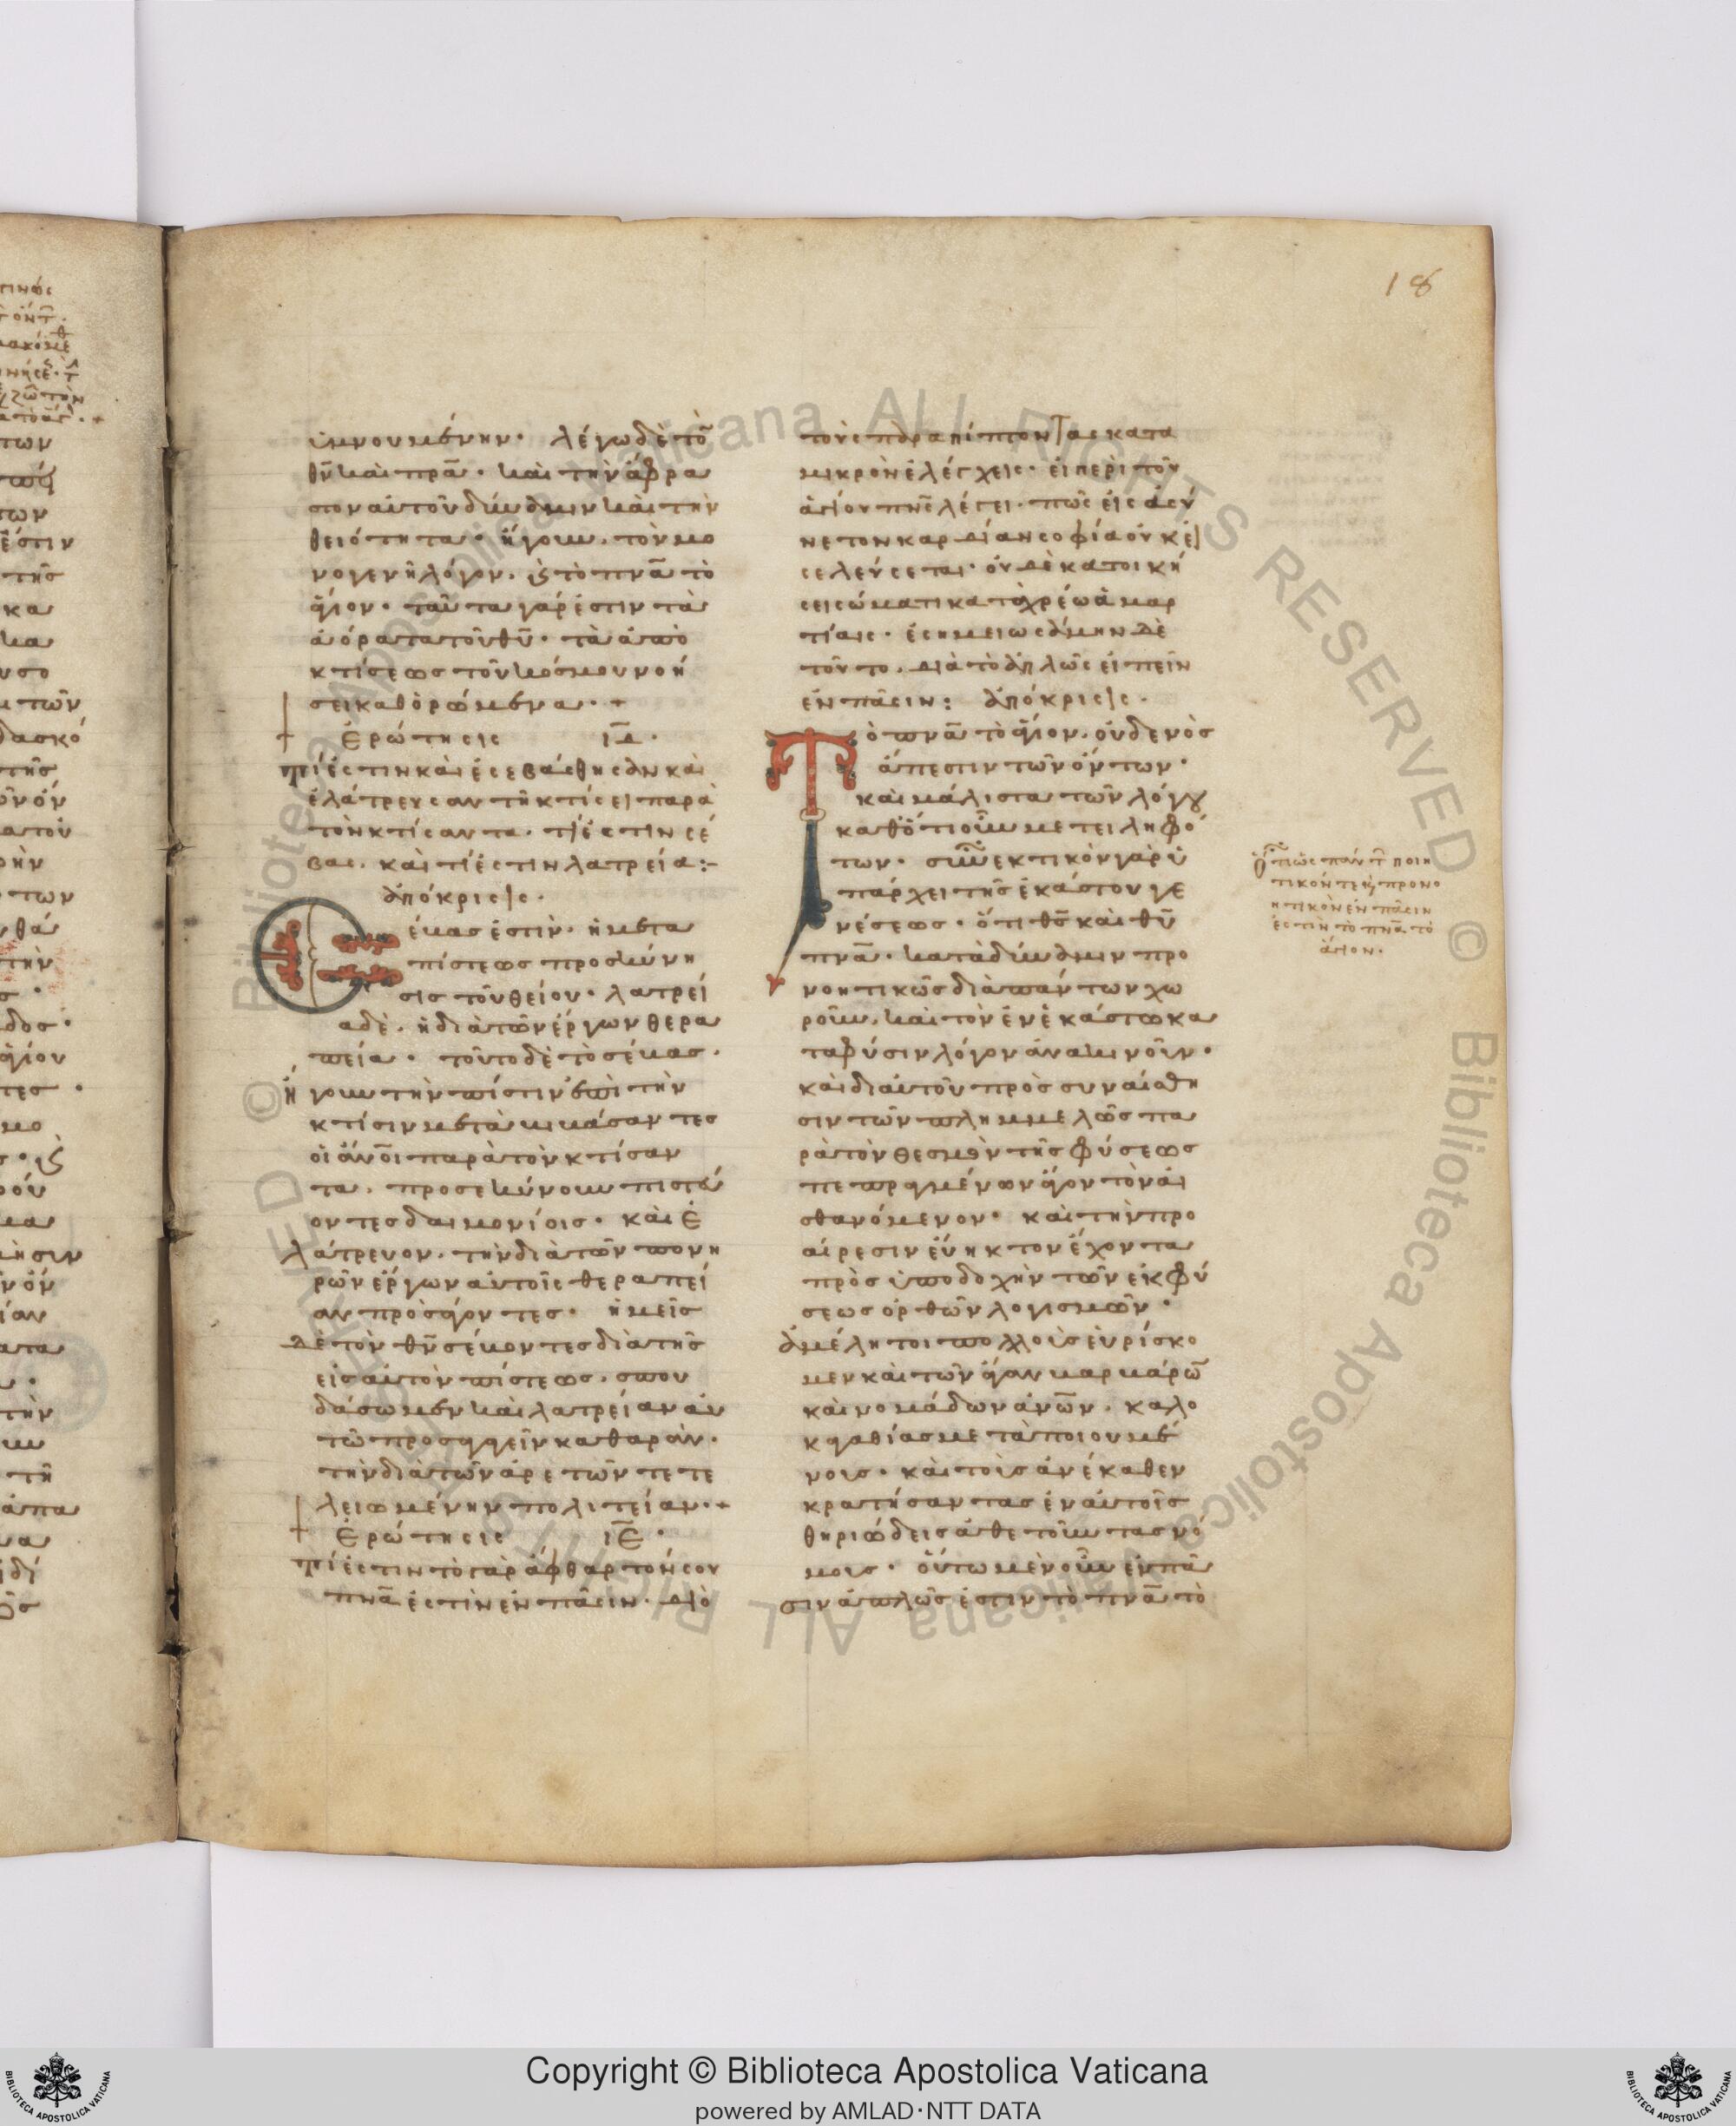 18
ὑμνουμένην· λέγω δὲ τὸ
θν̅ καὶ πρα̅· καὶ τὴν ἄφρα
στον αὐτοῦ δύναμιν καὶ τὴν
θειότητα· ἤγουν, τὸν μο
νογενῆ λόγον, καὶ τὸ πνα̅ τὸ
ἅγιον· ταῦτα γάρ ἐστιν τὰ
ἀόρατα τοῦ θυ̅· τὰ ἀπὸ
κτίσεως τοῦ κόσμου νοή
σει καθορώμενα·+
Ἐρώτησις ιδ̅·
τί ἐστιν καὶ ἐσεβάσθησαν καὶ
ἐλάτρευσαν τῇ κτίσει παρὰ
τὸν κτίσαντα· τί ἐστιν σέ
βας, καὶ τί ἐστιν λατρεία:-
ἀπόκρισις·
Σέβας ἐστὶν· ἡ μετὰ
πίστεως προσκύνη
σις τοῦ θείου· λατρεί
α δὲ, ἡ διὰ τῶν ἔργων θερα
πεία· τοῦτο δὲ τὸ σέβας·
ἤγουν τὴν πίστιν ἐπὶ τὴν
κτίσιν μεταβιβάσαντες
οἱ ἄνοι̅ παρὰ τὸν κτίσαν
τα, προσεκύνουν πιστεύ
οντες δαιμονίοις· καὶ ἐ
λάτρευον, τὴν διὰ τῶν πονη
ρῶν ἔργων αὐτοῖς θεραπεί
αν προσάγοντες· ἡμεῖς
δὲ τὸν θν̅ σέβοντες διὰ τῆς
εἰς αὐτὸν πίστεως, σπου
δάσωμεν καὶ λατρείαν αὐ
τῶ προσαγαγεῖν καθαρὰν·
τὴν διὰ τῶν ἀρετῶν τετε
λειωμένην πολιτείαν·+
Ἐρώτησις ιε̅·
τί ἐστιν τὸ γὰρ ἄφθαρτόν σου
πνα̅ ἐστὶν ἐν πᾶσιν· διὸ
τοὺς παραπίπτοντας κατα
μικρὸν ἐλέγχεις· εἰ περὶ τοῦ
ἁγίου πνς̅ λέγει· πῶς εἰς ἀσύ
νετον καρδίαν σοφία οὐκ εἰ
σελεύσεται· οὐδὲ κατοική
σει σώματι κατάχρέω ἁμαρ
τίαις· ἐσημειωσάμην δὲ
τοῦτο, διὰ τὸ ἁπλῶς εἰπεῖν
ἐν πᾶσιν: ἀπόκρισις·
Τὸ πνα̅ τὸ ἅγιον, οὐδενὸς
ἄπεστιν τῶν ὄντων·
καὶ μάλιστα τῶν λόγου
καθ' ὁτιοῦν μετειληφό
των· συνεκτικὸν γὰρ ὑ
πάρχει τῆς ἑκάστου γε
νέσεως· ὅτι θς̅ καὶ θυ̅
πνα̅· κατὰ δύναμιν προ
νοητικῶς διὰ πάντων χω
ροῦν, καὶ τὸν ἐν ἑκάστω κα
τα φύσιν λόγον ἀνακινοῦν·
καὶ δι' αὐτοῦ πρὸς συναίσθη
σιν τῶν πλημμελῶς πα
ρὰ τὸν θεσμὸν τῆς φύσεως
πεπραγμένων ἄγον τὸν αἰ
σθανόμενον· καὶ τὴν προ
αίρεσιν εὔηκτον ἔχοντα
πρὸς ὑποδοχὴν τῶν ἐκ φύ
σεως ὀρθῶν λογισμῶν·
ἀμέλητοι πολλοὺς εὑρίσκο
μεν καὶ τῶν ἄγαν βαρβάρων
καὶ νομάδων ἀνω̅ν, καλο
καγαθίας μεταποιουμέ
νους· καὶ τοὺς ἀνέκαθεν
κρατήσαντας ἐν αὐτοῖς
θηριώδεις ἀθετοῦντας νό
μους· οὕτω μὲν οὖν ἐν πᾶ
σιν ἁπλῶς ἐστιν τὸ πνα̅ τὸ
ποιη
τικόν τε καὶ προνο
ητικὸν ἐν πᾶσιν
ἐστὶν τὸ πνα̅ τὸ
ἅγιον·
Copyright © Biblioteca Apostolica Vaticana
powered by AMLAD·NTT DATA